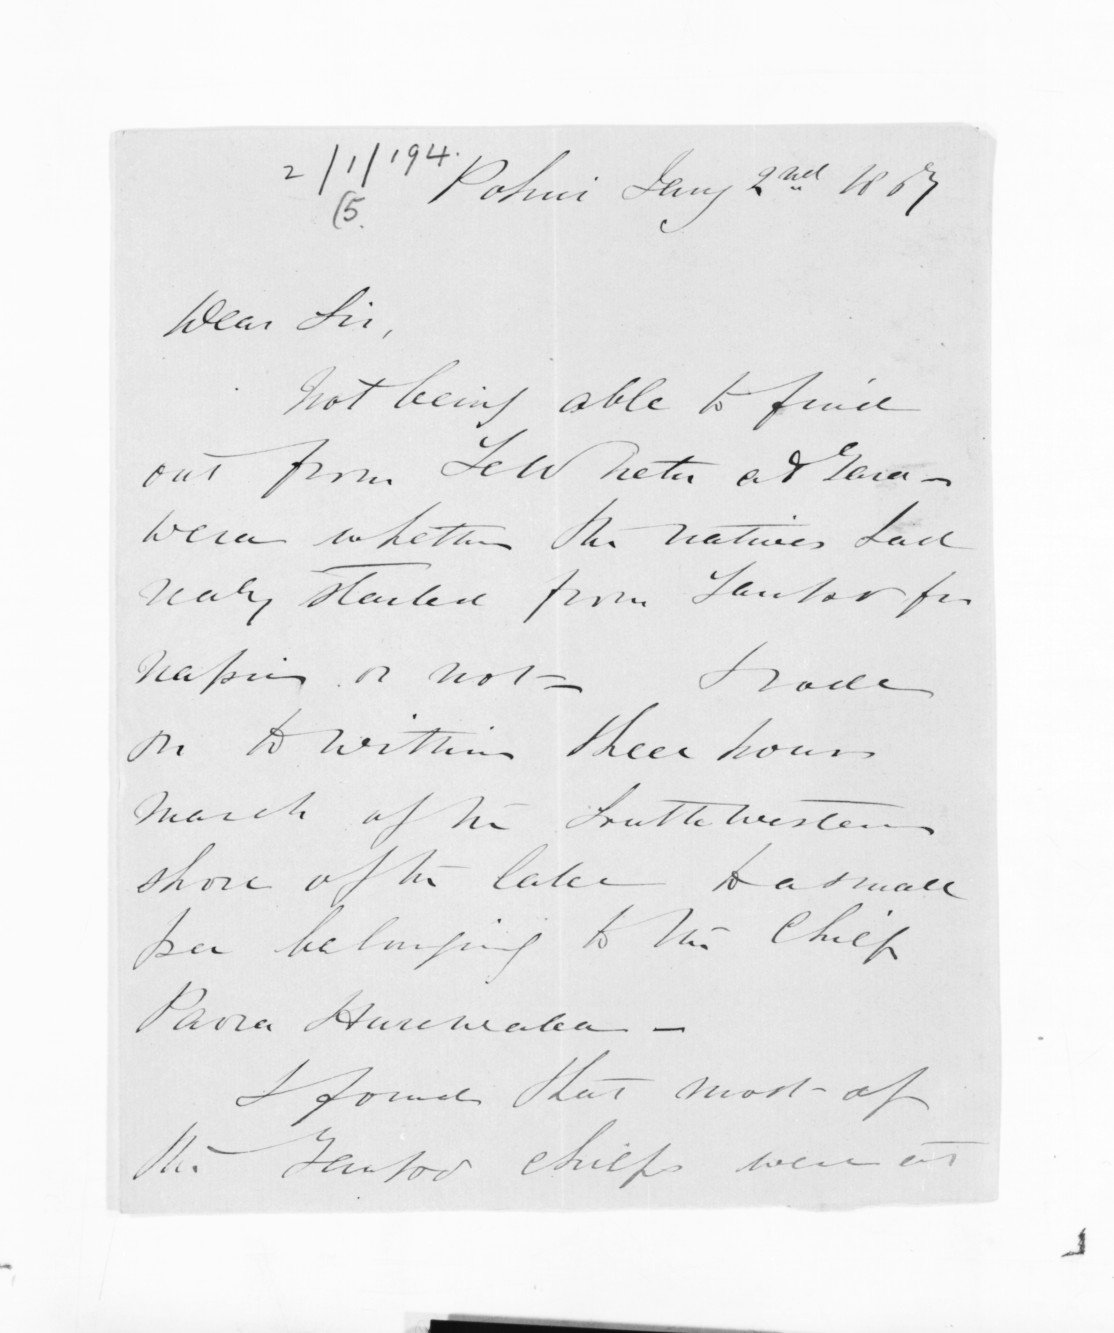 2/1/194.
(5.
Pohui Jany 2nd 1867
Dear Sir,
Not being able to find
out from Te Wheta at Tara-
wera whether the natives had
realy started from Taupo for
Napier or not - I rode
on to within three hours
march of the South Western
shore of the lake to a small
pa belonging to the Chief
Paora
I found that most of
the Taupo chiefs were at